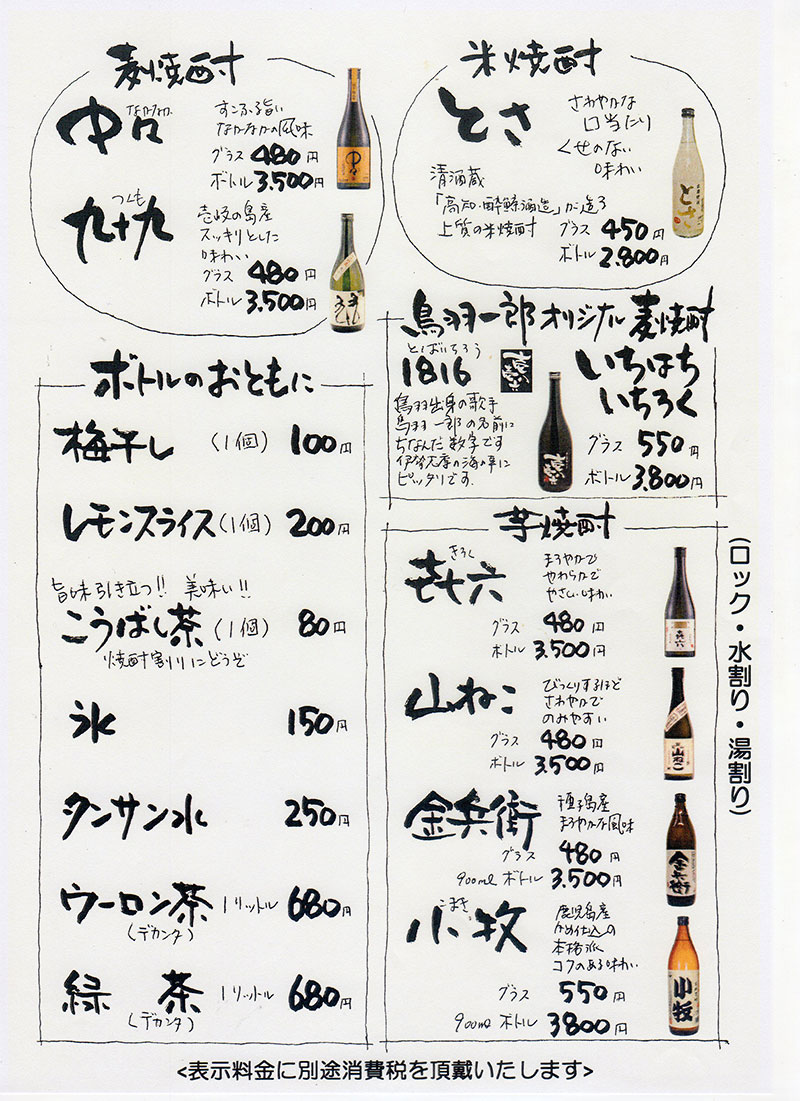 麦焼酎
なかなか
中々
すこぶる旨い
なかなかの風味
グラス 480円
ボトル 3.500円
つくも
九十九
壱岐の島産
スッキリとした
味わい
グラス 480円
ボトル 3.500円
米焼酎
とさ
さわやかな
口当たり
くせのない
味わい
清酒蔵
「高知・酔鯨酒造」が造る
上質の米焼酎
グラス 450円
ボトル 2.800円
鳥羽一郎オリジナル麦焼酎
とばいちろう
1816
いちはち
いちろく
鳥羽出身の歌手
鳥羽一郎の名前に
ちなんだ数字です
伊勢志摩の海の幸に
ピッタリです.
グラス 550円
ボトル 3.800円
ボトルのおともに
梅干し (1個) 100円
レモンスライス (1個) 200円
旨味引き立つ!! 美味い!!
こうばし茶 (1個) 80円
焼酎割りにどうぞ
氷 150円
タンサン水 250円
ウーロン茶 1リットル 680円
(デカンタ)
緑 茶 1リットル 680円
(デカンタ)
芋焼酎
きろく
㐂六
まろやかで
やわらかで
やさしい味わい
グラス 480円
ボトル 3.500円
山ねこ
びっくりするほど
さわやかで
のみやすい
グラス 480円
ボトル 3.500円
金兵衛
種子島産
まろやかな風味
グラス 480円
900ml ボトル 3.500円
こまき
小牧
鹿児島産
かめ仕込の
本格派
コクのある味わい
グラス 550円
900ml ボトル 3800円
(ロック・水割り・湯割り)
中々
とさ
山ねこ
金兵衛
小牧
<表示料金に別途消費税を頂戴いたします>